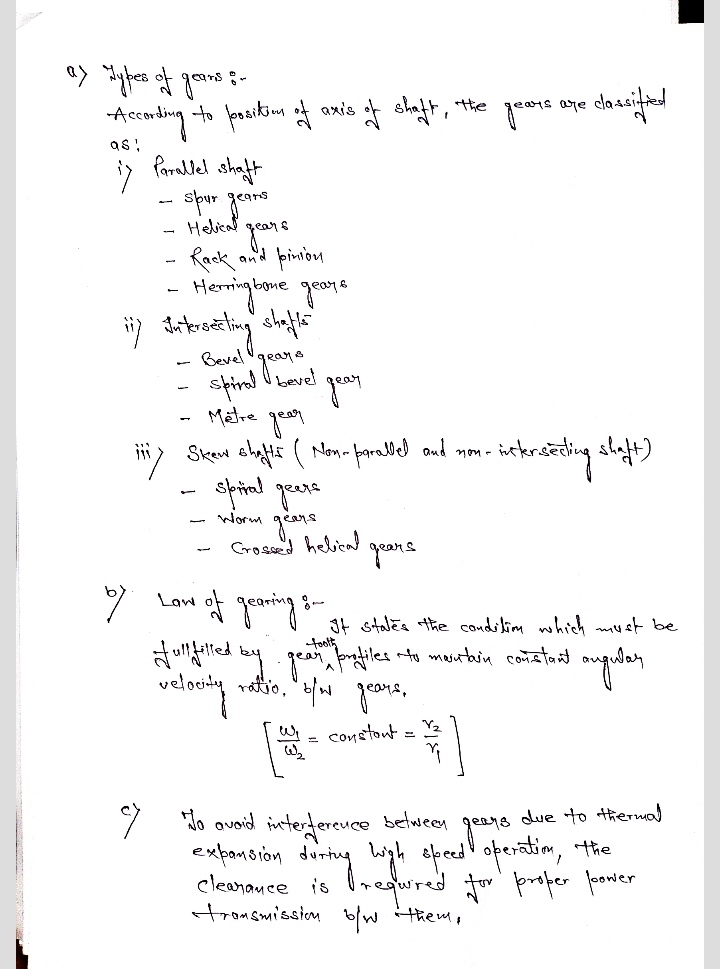 a) Types of gears :-
According to position of axis of shaft, the gears are classified
as:
i) Parallel shaft
- Spur gears
- Helical gears
- Rack and pinion
- Herringbone gears
ii) Intersecting shafts
- Bevel gears
- Spiral bevel gear
- Metre gear
iii) Skew shafts (Non-parallel and non-intersecting shaft)
- Spiral gears
- Worm gears
- Crossed helical gears
b) Law of gearing :-
It states the condition which must be
fullfilled by gear tooth profiles to maintain constant angular
velocity ratio, b/w gears,
[ω1/ω2 = constant = r2/r1]
c) To avoid interference between gears due to thermal
expansion during high speed operation, the
clearance is required for proper power
transmission b/w them,